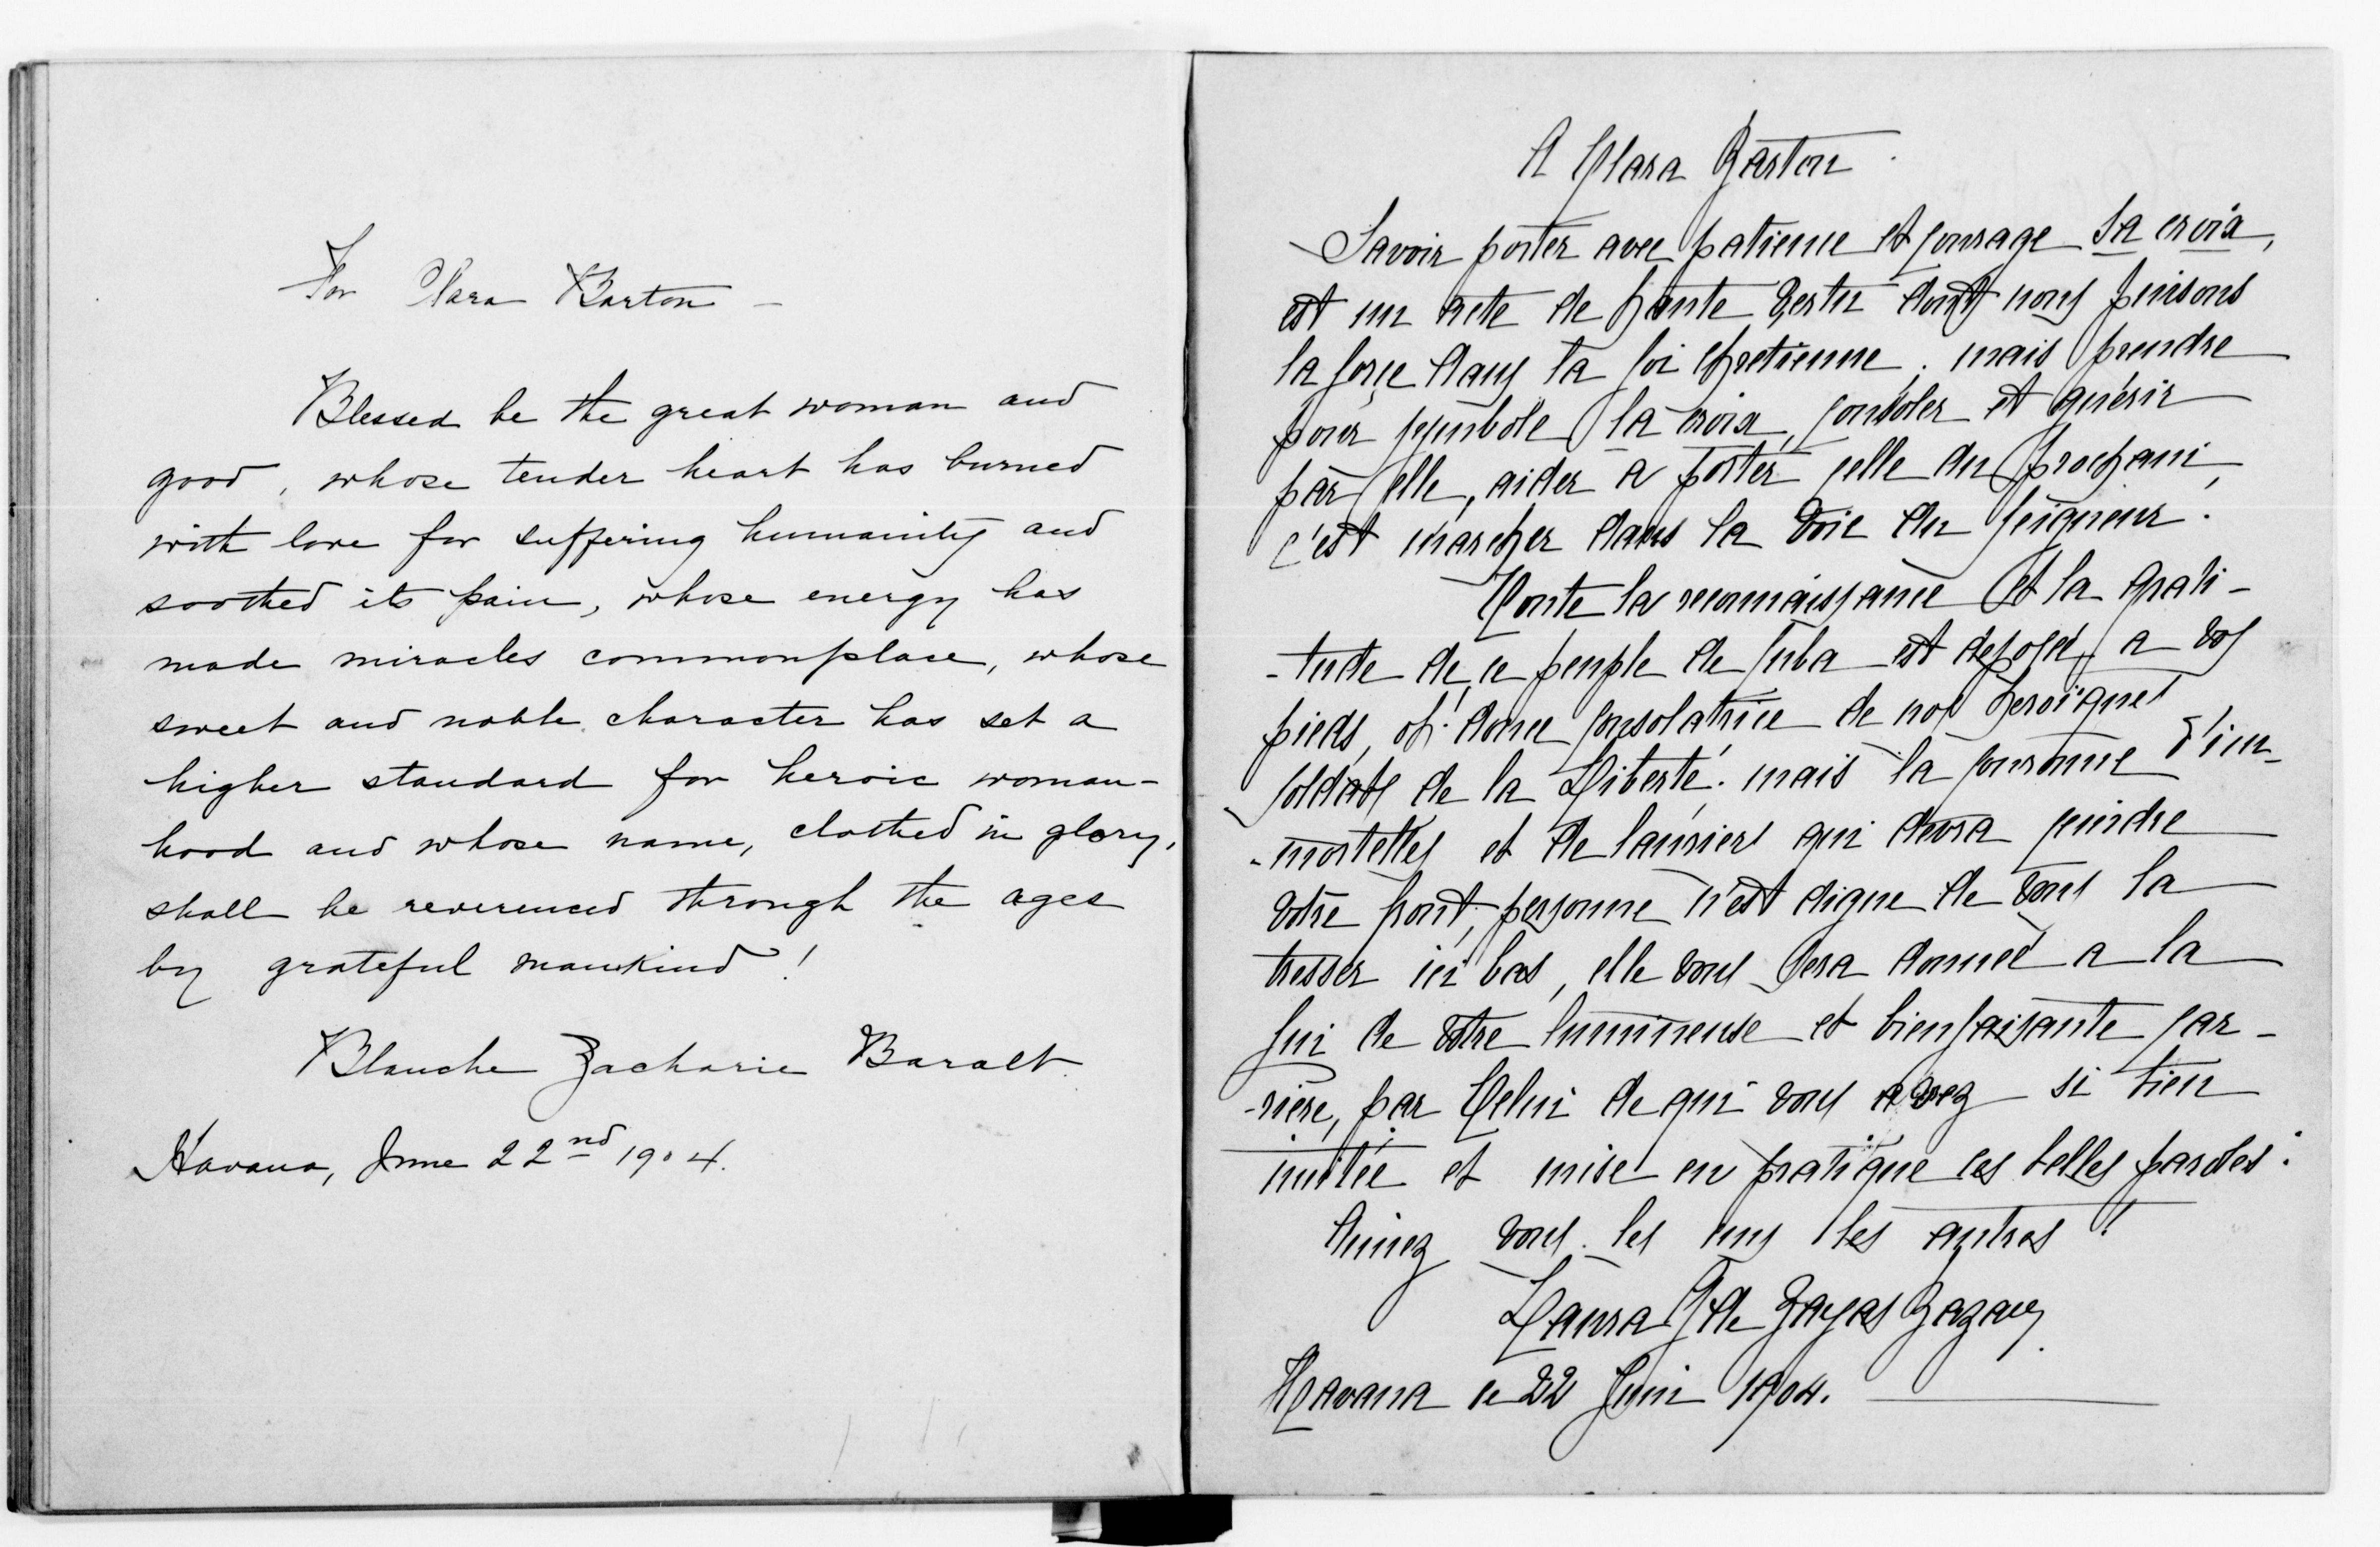 For Clara Barton —
Blessed be the great woman and
good, whose tender heart has burned
with love for suffering humanity and
soothed its pain, whose energy has
made miracles commonplace, whose
sweet and noble character has set a
higher standard for heroic woman-
hood and whose name, clothed in glory,
shall be reverenced through the ages
by grateful mankind!
Blanche Zacharie Baralt
Havana, June 22nd 1904.
A Clara Barton.
Savoir porter avec patience et courage sa croix,
est un acte de haute vertu dont nous puisons
la force dans la foi chretienne. mais prendre
pour symbole la croix, consoler et guérir
par elle, aider a porter celle du prochain,
c'est marcher dans la voie du Seigneur.
Toute la reconnaissance et la grati-
-tude de ce peuple de Cuba est deposée a vos
pieds, oh! douce consolatrice de nos heroïques
soldats de la Liberté. mais la couronne d'im-
-mortelles et de lauriers qui devra ceindre
votre front, personne n'est digne de vous la
tresser ici bas, elle vous sera donnée a la
fin de votre lumineuse et bienfaisante car-
-riere, par Celui de qui vous avez si bien
imitée et mise en pratique ces belles paroles:
Aimez vous les uns les autres!
Laura G de Zayas Bazan
Havana ce 22 Juin 1904.